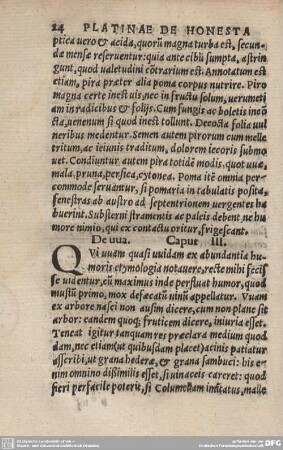 24 PLATINAE DE HONESTA
ptica uero & acida, quorũ magna turba est, secun-
dæ mensæ reseruentur: quia ante cibũ sumpta, astrin
gunt, quod ualetudini cõtrarium est. Annotatum est
etiam, pira præter alia poma corpus nutrire. Piro
magna certe inest uis, nec in fructu solum, uerumeti
am in radicibus & folijs. Cum fungis ac boletis inco
cta, uenenum si quod inest tollunt. Decocta folia uul
neribus medentur. Semen autem pirorum cum melle
tritum, ac ieiunis traditum, dolorem iecoris submo
uet. Condiuntur autem pira totidē modis, quot uuæ,
mala, pruna, persica, cytonea. Poma itē omnia per-
commode seruantur, si pomaria in tabulatis posita,
fenestras ab austro ad septentrionem uergentes ha
buerint. Substerni stramentis ac paleis debent, ne hu
more nimio, qui ex contactu oritur, frigescant.
De uua. Caput III.
QVi uuam quasi uuidam ex abundantia hu-
moris etymologia notauere, recte mihi feciś
se uidentur, cũ maximus inde perfluat humor, quod
mustũ primo, mox defæcatũ uinũ appellatur. Vuam
ex arbore nasci non ausim dicere, cum non plane sit
arbor: eandem quoq; fruticem dicere, iniuria esset.
Teneat igitur tanquam res præclara medium quod
dam, nec etiam (ut quibusdam placet) acinis patiatur
ascribi, ut grana hederæ, & grana sambuci: his e-
nim omnino dißimilis esset, si uinaceis careret: quod
fieri perfacile poterit, si Columellam imitatus, malle